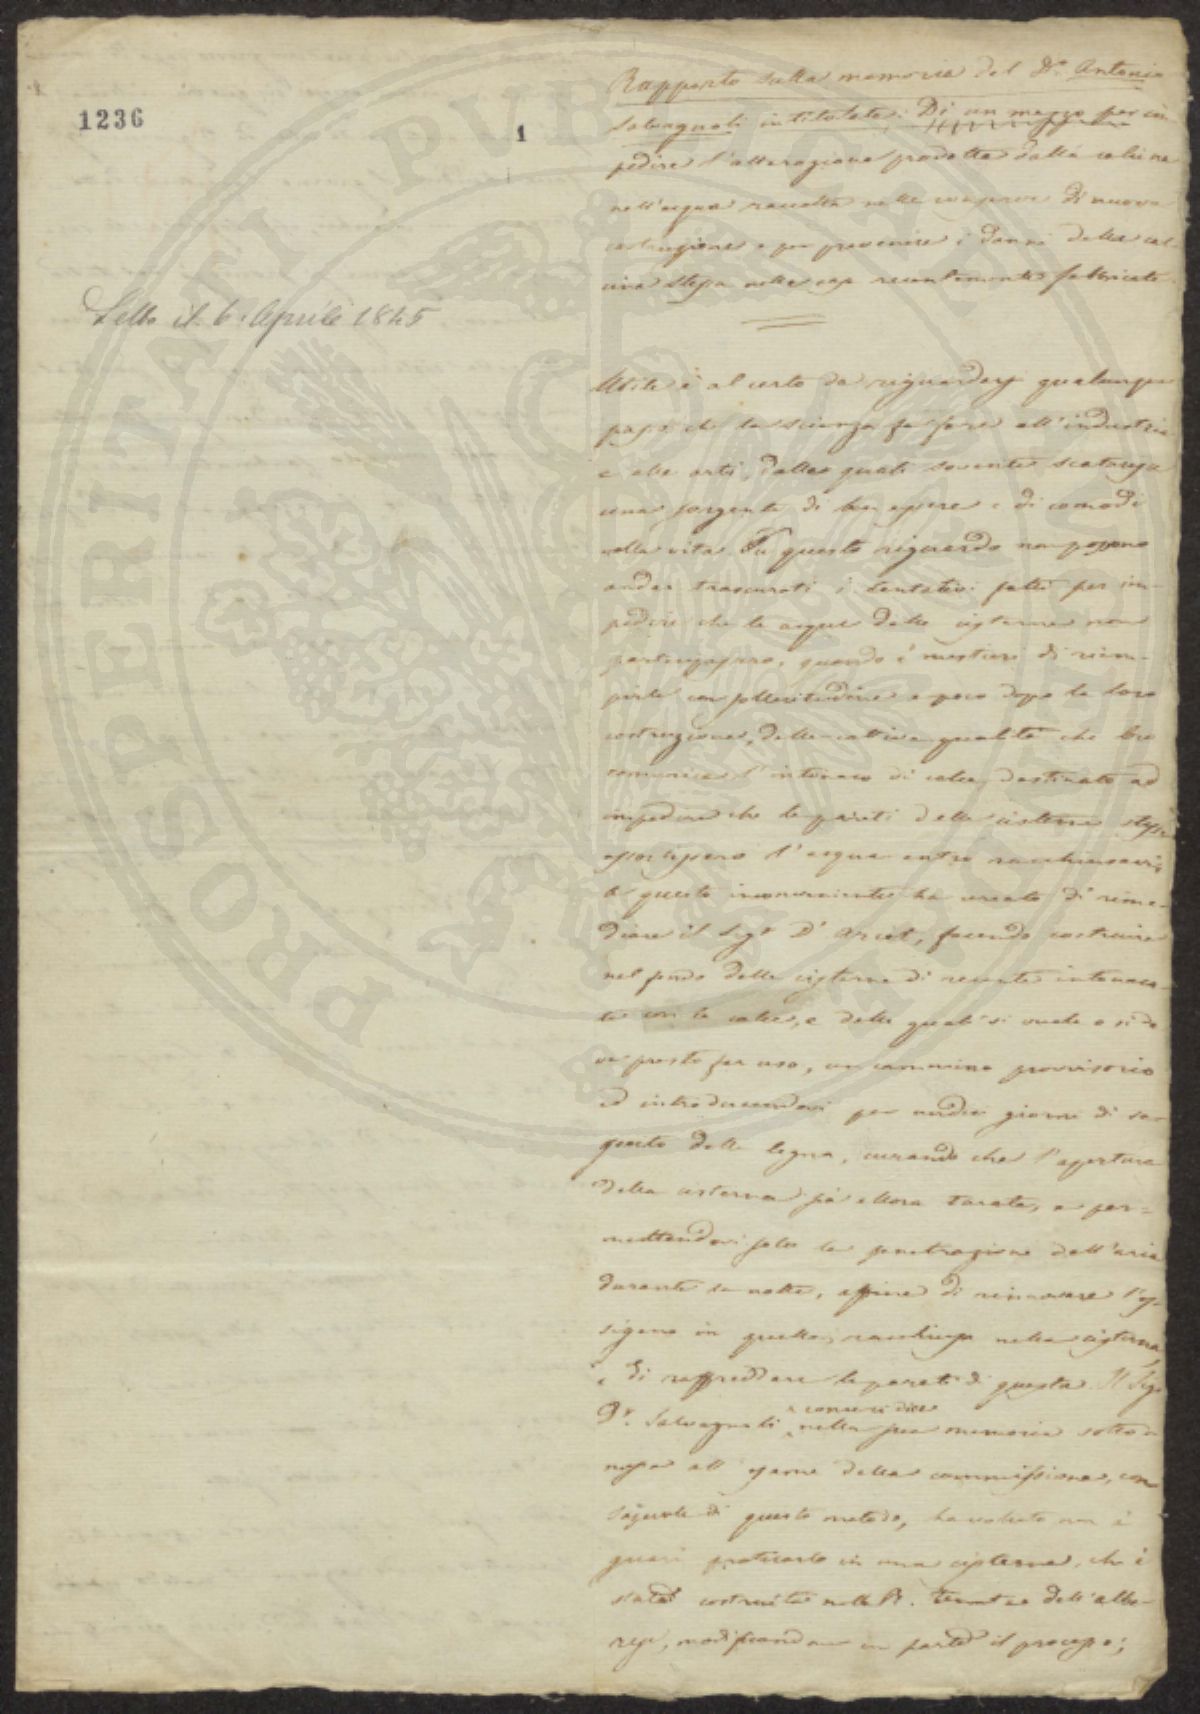 1236
1
Rapporto sulla memoria del Dr. Antonio
Salvagnoli intitolata: Di un mezzo per im
pedire l'alterazione prodotta dalla calcina
nell'acqua raccolta nelle conserve di nuova
costruzione e per prevenire i danni della cal-
cina stessa nelle case recentemente fabbricate.
Letto il 6. Aprile 1845
Utile è al certo da riguardarsi qualunque
passo che la scienza fa fare all'industria
e alle arti, dalle quali sovente scaturisce
una sorgente di ben essere e di comodi
nella vita. In questo riguardo non possono
andar trascurati i tentativi fatti per im-
pedire che le acque delle cisterne non
partecipassero, quando è mestieri di riem-
pirle con sollecitudine e poco dopo la loro
costruzione, della cattiva qualità che loro
comunica l'intonaco di calce, destinato ad
impedire che le pareti della cisterna stessa
assorbissero l'acqua entro racchiusavi.
A questo inconveniente ha cercato di rime-
diare il Sigr. D'Arcet, facendo costruire
nel fondo delle cisterne di recente intonaca-
te con la calce, e delle quali si vuole o si de
ve presto far uso, un cammino provvisorio
ed introducendovi per undici giorni di se-
guito della legna, curando che l'apertura
della cisterna sia allora turata, e per-
mettendovi solo la penetrazione dell'aria
durante la notte, affine di rinnovare l'os-
sigeno in quella racchiusa nella cisterna,
e di raffreddare le pareti di questa. Il Sigr.
Dr. Salvagnoli, conseridice
nella sua memoria sotto
messa all'esame della commissione, con
sapevole di questo metodo, ha voluto non è
guari praticarlo in una cisterna, che è
stata costruita nella R. Tenuta dell'Albe-
rese, modificandone in parte il processo;